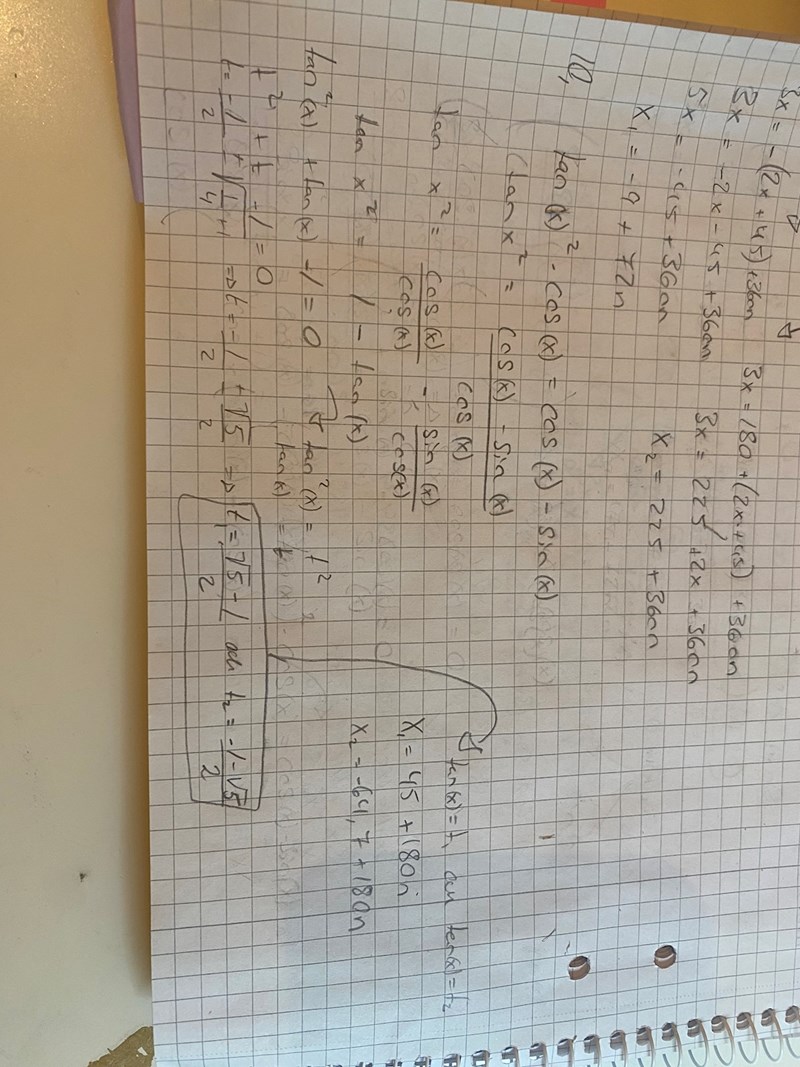 3x = -(2x+45)+360n
3x = -2x-45+360n
5x = -45+360n
x₁ = -9 + 72n
3x = 180+(2x+45)+360n
3x = 225+2x+360n
x₂ = 225+360n
10,
tan(x)² · cos(x) = cos(x) - sin(x)
tan x² = cos(x) - sin(x) / cos(x)
tan x² = cos(x) / cos(x) - sin(x) / cos(x)
tan x² = 1 - tan(x)
tan²(x) + tan(x) - 1 = 0 → tan²(x) = t²
tan(x) = t
t² + t - 1 = 0
t = -1/2 ± √(1/4+1) ⇒ t = -1/2 ± √5/2 ⇒ t₁ = √5-1 / 2 och t₂ = -1-√5 / 2
tan(x) = t₁ och tan(x) = t₂
x₁ = 45 + 180n
x₂ = -61,7 + 180n